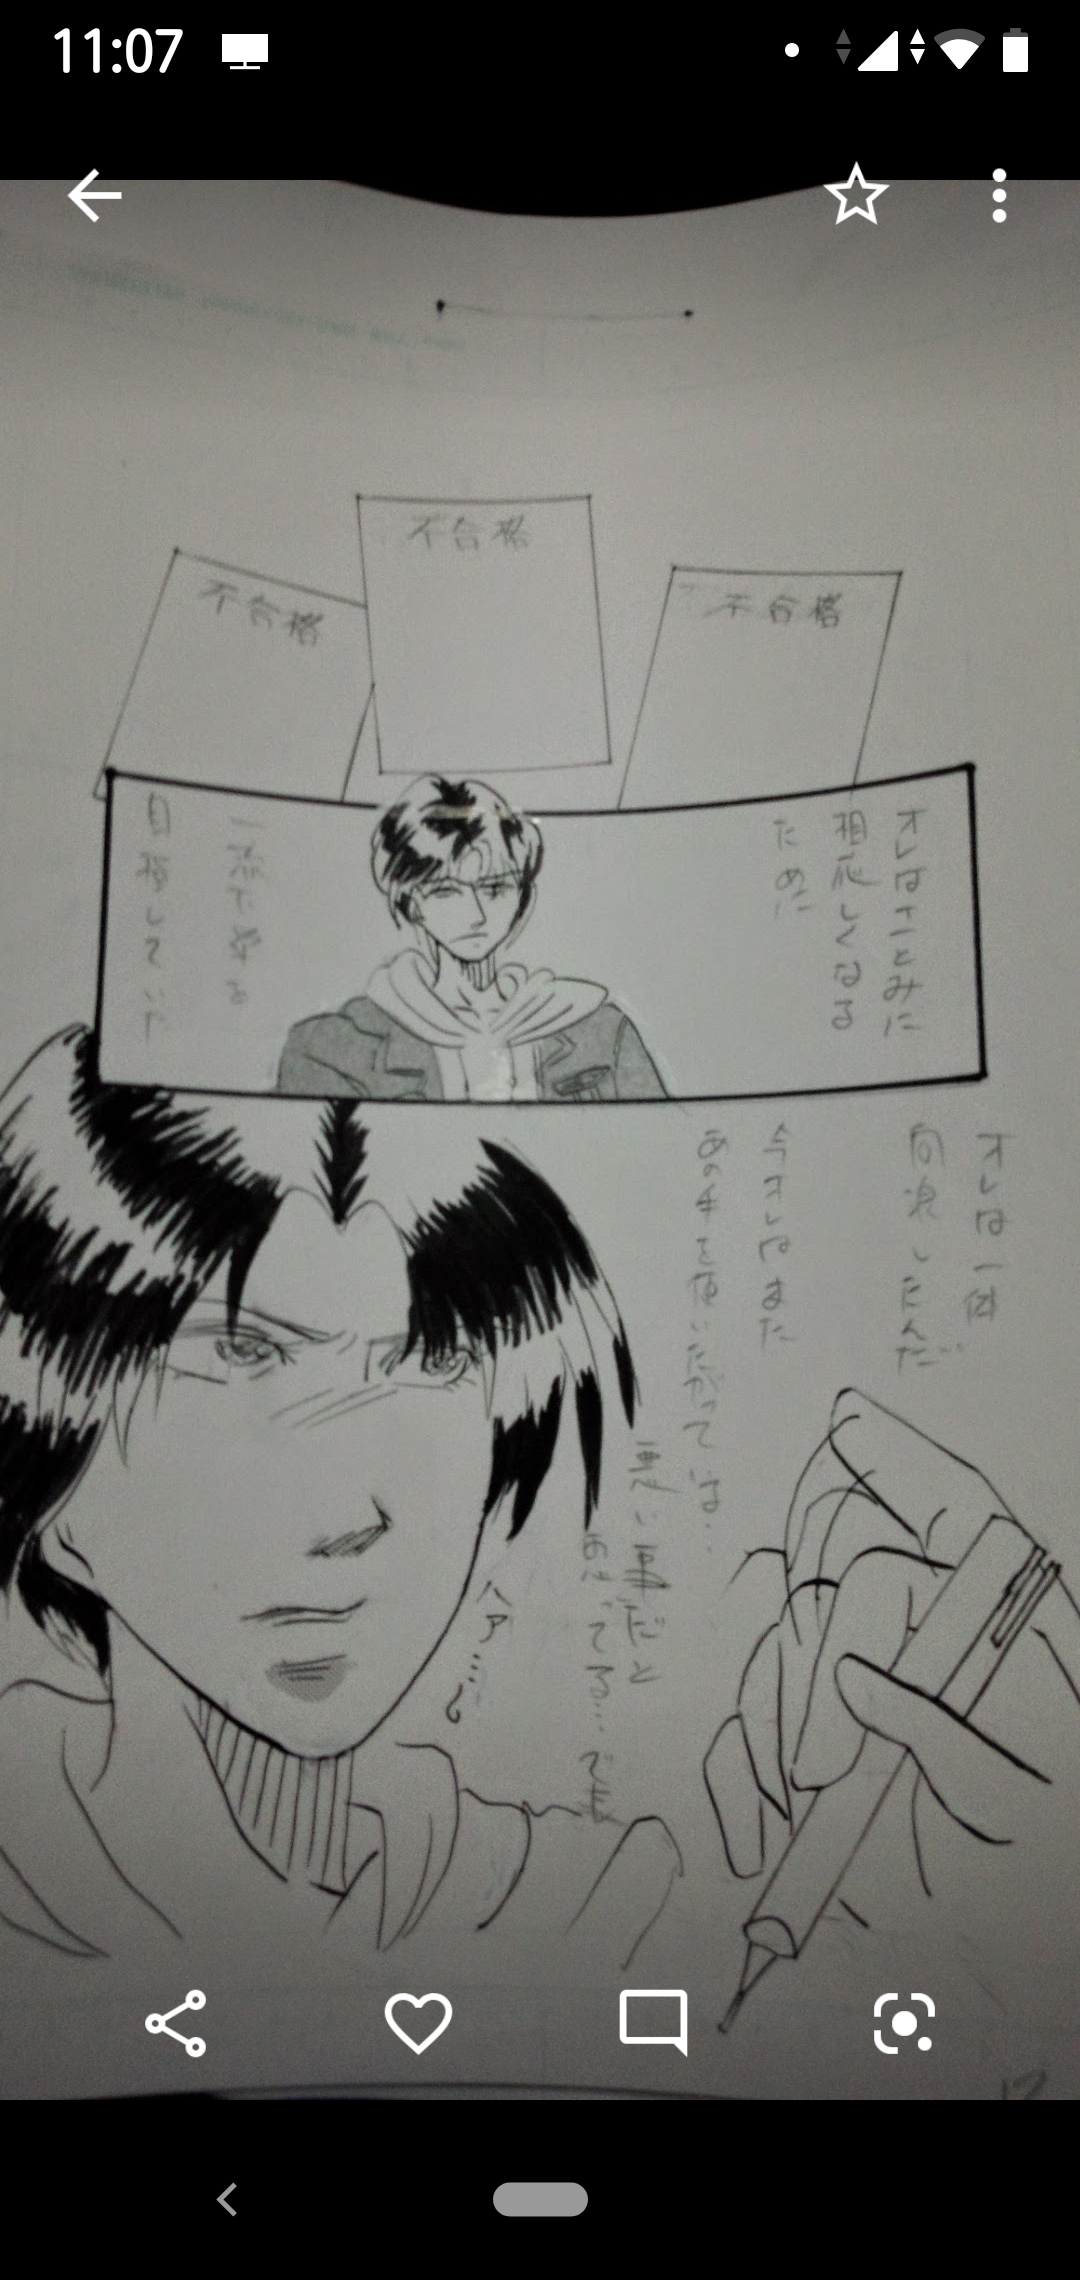 11:07
不合格
不合格
不合格
オレはさとみに
相応しくなる
ために
一流大学を
目指していた
オレは一体
何浪したんだ
今オレはまた
あの手を使いたがっては…
悪い事だと
わかってる…でも
ハァ…